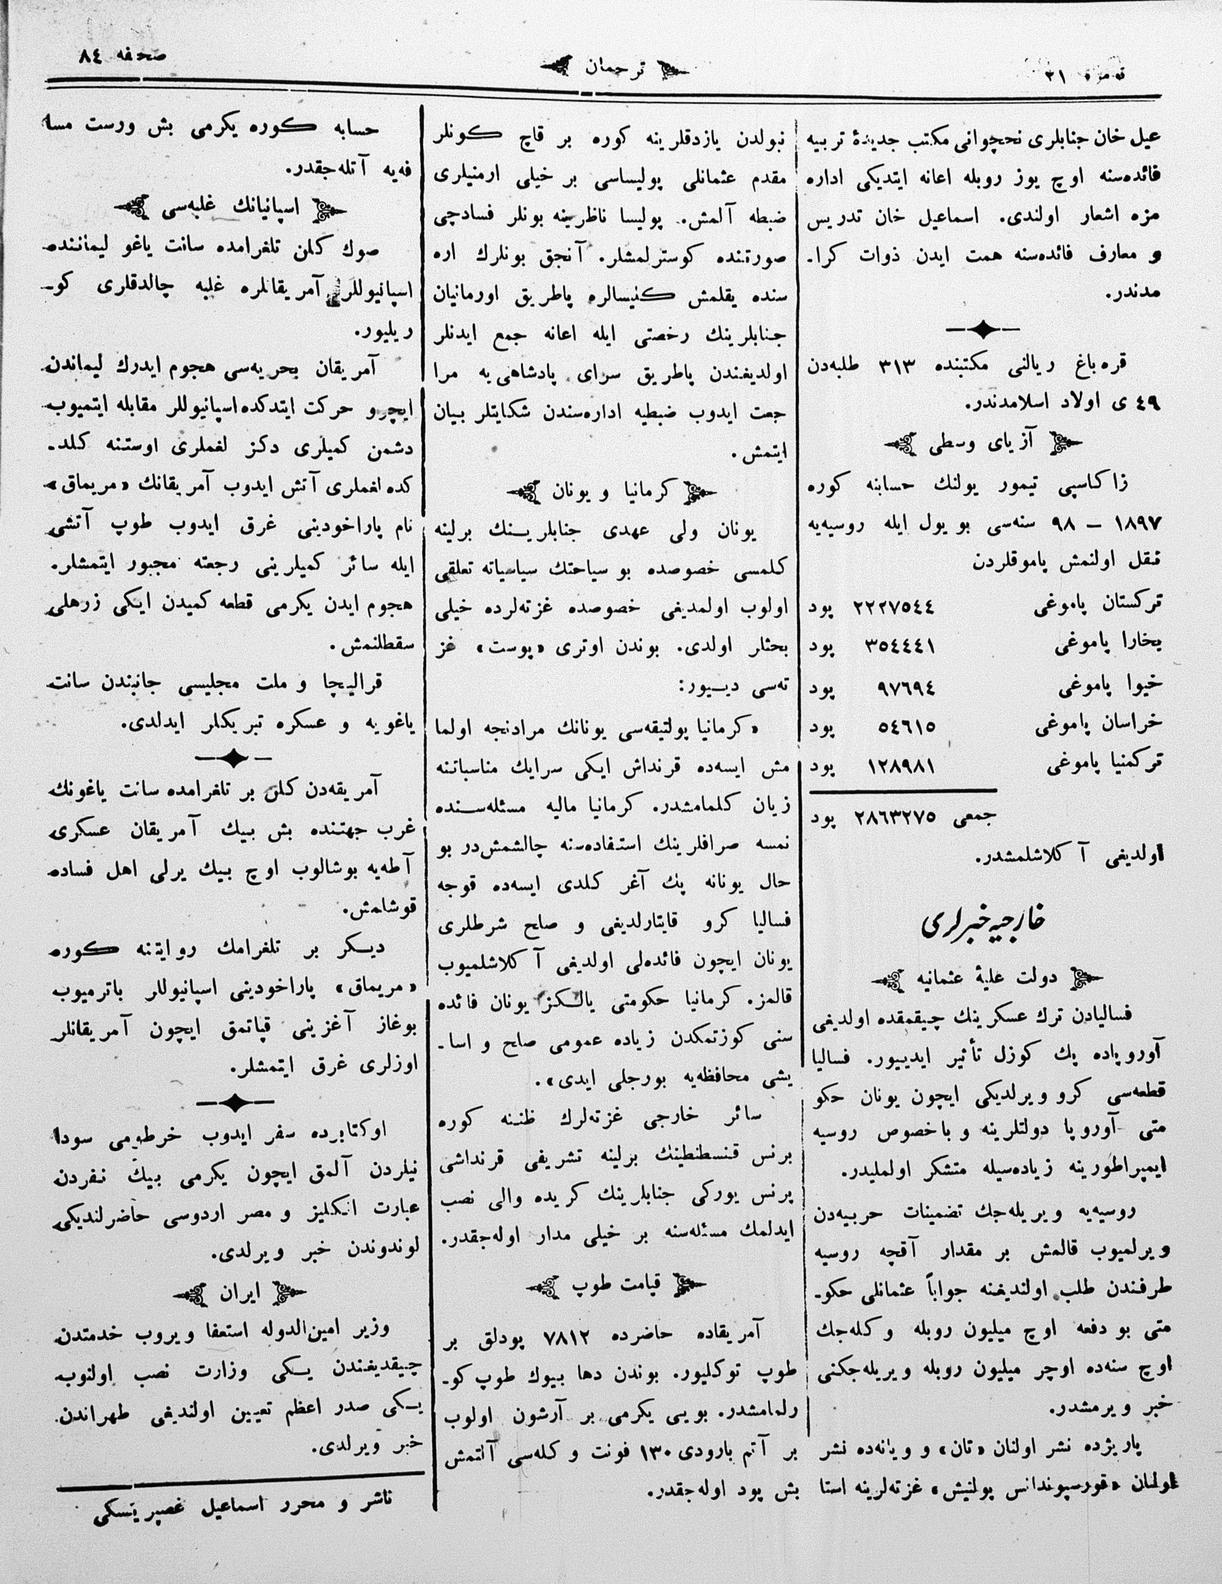 نومره ٢١
ترجمان
صحفه ٨٤
عيل خان جنابلرى نخچوانى مكتب جديدۀ تربيه
فائده‌سنه اوچ يوز روبله اعانه ايتديكى اداره
مزه اشعار اولندى. اسماعيل خان تدريس
و معارف فائده‌سنه همت ايدن ذوات كرا-
مدندر.
قره‌باغ ريالنى مكتبنده ٣١٣ طلبه‌دن
٤٩ ى اولاد اسلامدندر.
آزياى وسطى
زاكاسپى تيمور يولنك حسابنه كوره
١٨٩٧ — ٩٨ سنه‌سى بو يول ايله روسيه‌يه
نقل اولنمش پاموقلردن
تركستان پاموغى ٢٢٢٧٥٤٤ پود
بخارا پاموغى ٣٥٤٤٤١ پود
خيوا پاموغى ٩٧٦٩٤ پود
خراسان پاموغى ٥٤٦١٥ پود
تركمنيا پاموغى ١٢٨٩٨١ پود
جمعى ٢٨٦٣٢٧٥ پود
اولديغى آكلاشلمشدر.
خارجيه خبرلرى
دولت عليۀ عثمانيه
فساليادن ترك عسكرينك چيقمقده اولديغى
آوروپاده پك كوزل تأثير ايدييور. فساليا
قطعه‌سى كرو ويرلديكى ايچون يونان حكو
متى آوروپا دولتلرينه و باخصوص روسيه
ايمپراطورينه زياده‌سيله متشكر اولمليدر.
روسيه‌يه ويريله‌جك تضمينات حربيه‌دن
ويرلميوب قالمش بر مقدار آقچه روسيه
طرفندن طلب اولنديغنه جواباً عثمانلى حكو-
متى بو دفعه اوچ ميليون روبله و كله‌جك
اوچ سنه‌ده اوچر ميليون روبله ويريله‌جكنى
خبر ويرمشدر.
پاريژده نشر اولنان «تان» و ويانه‌ده نشر
اولنان «قورسپوندانس پولتيش» غزته‌لرينه استا
نبولدن يازدقلرينه كوره بر قاچ كونلر
مقدم عثمانلى پوليساسى بر خيلى ارمنيلرى
ضبطه آلمش. پوليسا ناظرينه بونلر فسادچى
صورتنده كوسترلمشلر. آنجق بونلرك اره
سنده يقلمش كنيسالره پاطريق اورمانيان
جنابلرينك رخصتى ايله اعانه جمع ايدنلر
اولديغندن پاطريق سراى پادشاهى‌يه مرا
جعت ايدوب ضبطيه اداره‌سندن شكايتلر بيان
ايتمش.
كرمانيا و يونان
يونان ولى عهدى جنابلرينك برلينه
كلمسى خصوصده بو سياحتك سياسياته تعلقى
اولوب اولمديغى خصوصده غزته‌لرده خيلى
بحثلر اولدى. بوندن اوترى «پوست» غز
ته‌سى ديـيور:
«كرمانيا پولتيقه‌سى يونانك مرادنجه اولما
مش ايسه‌ده قرنداش ايكى سرايك مناسباتنه
زيان كلمامشدر. كرمانيا ماليه مسئله‌سنده
نمسه صرافلرينك استفاده‌سنه چالشمش‌در بو
حال يونانه پك آغر كلدى ايسه‌ده قوجه
فساليا كرو قايتارلديغى و صلح شرطلرى
يونان ايچون فائده‌لى اولديغى آكلاشلميوب
قالمز. كرمانيا حكومتى يالكز يونان فائده
سنى كوزتمكدن زياده عمومى صلح و اسا-
يشى محافظه‌يه بورجلى ايدى».
سائر خارجى غزته‌لرك ظننه كوره
برنس قنسطنطينك برلينه تشريفى قرنداشى
پرنس يوركى جنابلرينك كريده والى نصب
ايدلمك مسئله‌سنه بر خيلى مدار اوله‌جقدر.
قيامت طوپ
آمريقاده حاضرده ٧٨١٢ پودلق بر
طوپ توكليور. بوندن دها بيوك طوپ كو-
رلمامشدر. بويى يكرمى بر آرشون اولوب
بر آتم بارودى ١٣٠ فونت و كله‌سى آلتمش
بش پود اوله‌جقدر.
حسابه كوره يكرمى بش ورست مسا
فه‌يه آتله‌جقدر.
اسپانيانك غلبه‌سى
صوك كلن تلغرامده سانت ياغو ليماننده
اسپانيوللر آمريقانلره غلبه چالدقلرى كو-
ريليور.
آمريقان بحريه‌سى هجوم ايدرك ليماندن
ايچرو حركت ايتدكده اسپانيوللر مقابله ايتميوب
دشمن كميلرى دكز لغملرى اوستنه كلد-
كده لغملرى آتش ايدوب آمريقانك «مريماق»
نام پاراخودينى غرق ايدوب طوپ آتشى
ايله سائر كميلرينى رجعته مجبور ايتمشلر.
هجوم ايدن يكرمى قطعه كميدن ايكى زرهلى
سقطلنمش.
قراليچا و ملت مجليسى جانبندن سانت
ياغويه و عسكره تبريكلر ايدلدى.
آمريقه‌دن كلن بر تلغرامده سانت ياغونك
غرب جهتنده بش بيك آمريقان عسكرى
آطه‌يه بوشالوب اوچ بيك يرلى اهل فساده
قوشلمش.
ديكر بر تلغرامك روايتنه كوره
«مريماق» پاراخودينى اسپانيوللر باترميوب
بوغاز آغزينى قپاتمق ايچون آمريقانلر
اوزلرى غرق ايتمشلر.
اوكتابرده سفر ايدوب خرطومى سودا
نيلردن آلمق ايچون يكرمى بيك نفردن
عبارت انكليز و مصر اردوسى حاضرلنديكى
لوندوندن خبر ويرلدى.
ايران
وزير امين‌الدوله استعفا ويروب خدمتدن
چيقديغندن يـكى وزارت نصب اولنوب
يـكى صدر اعظم تعيين اولنديغى طهراندن
خبر ويرلدى.
ناشر و محرر اسماعيل غصپرينسكى